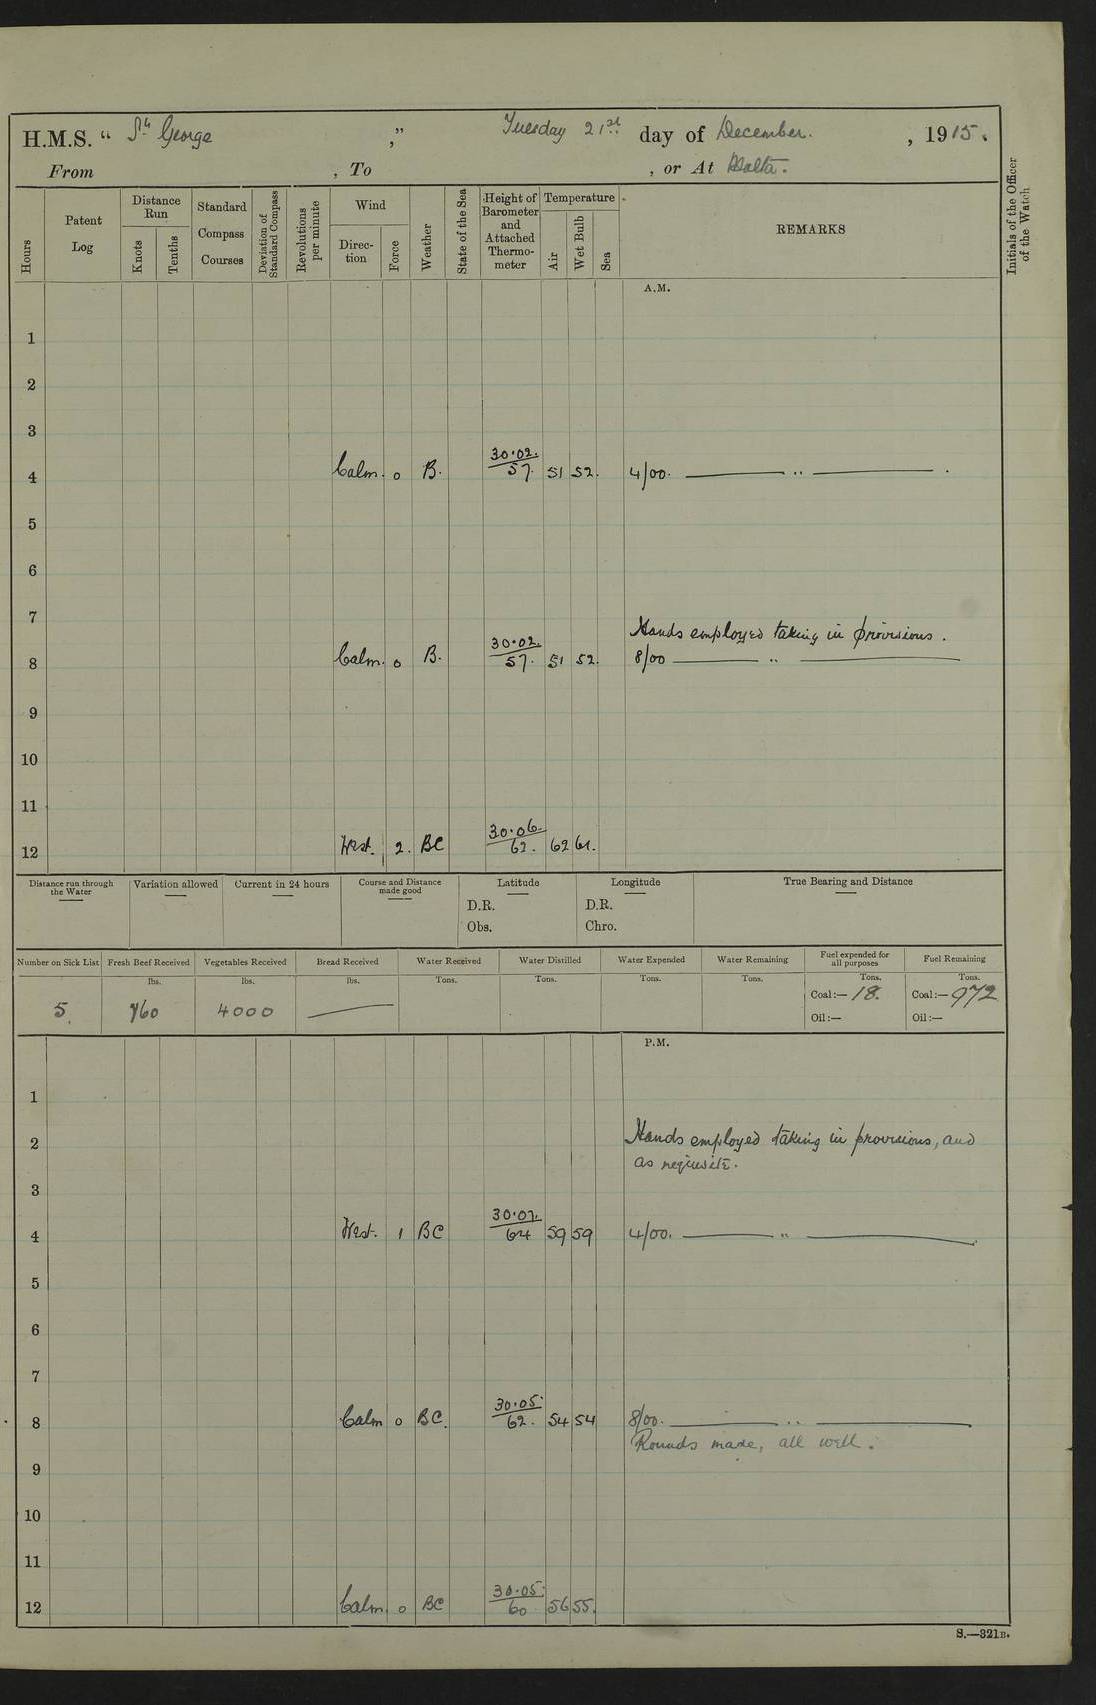 H.M.S. “ St George ,” Tuesday 21st. day of December. , 1915.
From , To , or At Malta.
Hours
Patent Log
Distance Run
Knots
Tenths
Standard Compass Courses
Deviation of Standard Compass
Revolutions per minute
Wind
Direc-tion
Force
Weather
State of the Sea
Height of Barometer and Attached Thermo-meter
Temperature
Air
Wet Bulb
Sea
REMARKS
Initials of the Officer of the Watch
A.M.
1
2
3
4 Calm. 0 B. 30.02. 57. 51 52. 4/00. ——— „ ——— .
5
6
7
Hands employed taking in provisions.
8 Calm. 0 B. 30.02. 57. 51 52. 8/00 ——— „ ———
9
10
11
12 West. 2. BC 30.06. 62. 62 61.
Distance run through the Water
Variation allowed
Current in 24 hours
Course and Distance made good
Latitude
D.R.
Obs.
Longitude
D.R.
Chro.
True Bearing and Distance
Number on Sick List
Fresh Beef Received
Vegetables Received
Bread Received
Water Received
Water Distilled
Water Expended
Water Remaining
Fuel expended for all purposes
Fuel Remaining
lbs. lbs. lbs. Tons. Tons. Tons. Tons. Tons. Tons.
5. 760 4000 ——— Coal:— 18. Coal:— 972
Oil:— Oil:—
P.M.
1
2 Hands employed taking in provisions, and
as requisite.
3
4 West. 1 BC 30.07. 64 59 59 4/00. ——— „ ———
5
6
7
8 Calm 0 BC. 30.05. 62. 54 54 8/00. ——— „ ———
Rounds made, all well.
9
10
11
12 Calm. 0 BC 30.05. 60 56 55.
S.—321B.